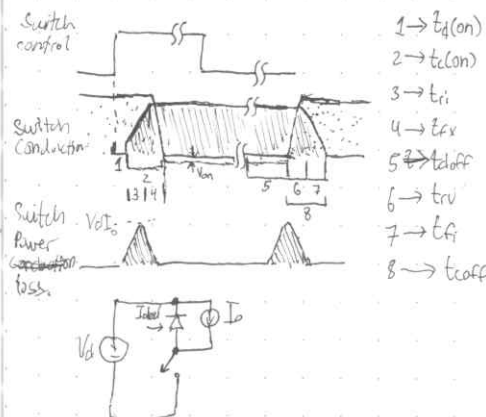 Switch
control
Switch
Conduction
1
2
3 4
Von
5
6 7
8
Switch
Power
loss.
VdIo
Vd
Io
1 → td(on)
2 → tc(on)
3 → tri
4 → tfx
5 → tdoff
6 → trv
7 → tfi
8 → tcoff